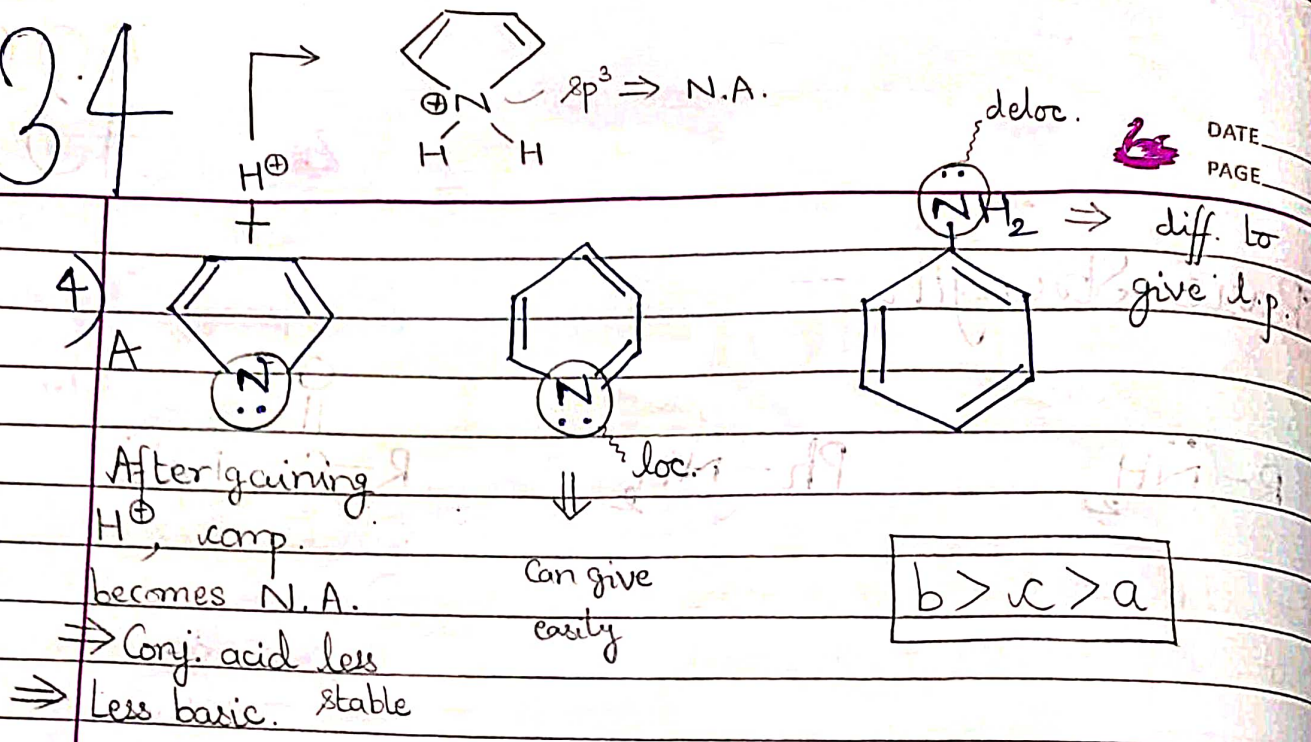 34
⊕N sp³ ⇒ N.A.
H H
H⊕
+
deloc.
DATE
PAGE
N̈H₂ ⇒ diff. to
give l.p.
4)
A
N
N
loc.
After gaining
H⊕, comp.
becomes N.A.
⇒ Conj. acid less
stable
⇒ Less basic.
⇓
Can give
easily
b > c > a